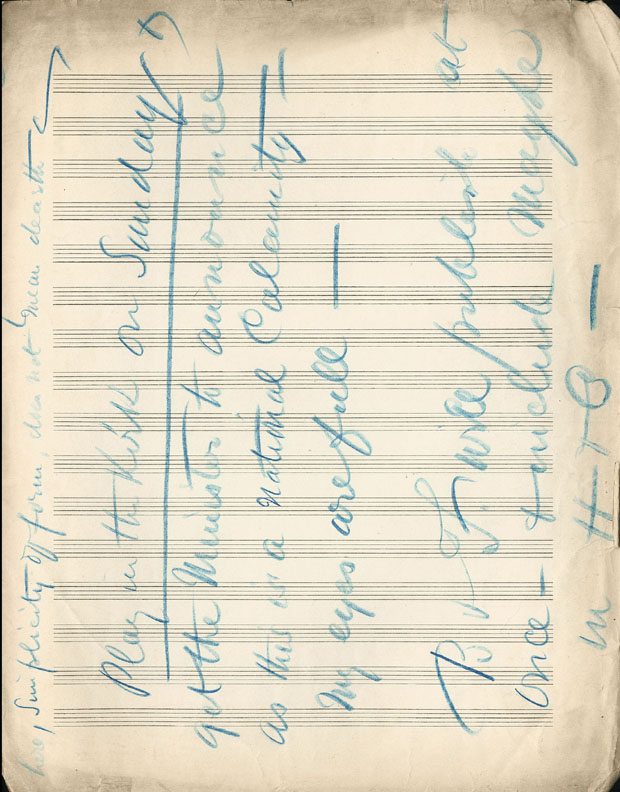 here, simplicity of form, does not mean dearth
Play in the Kirk on Sunday
get the Minister to announce
as this is a national Calamity —
My eyes are full —
B & F will publish at
once — & include maybe
in